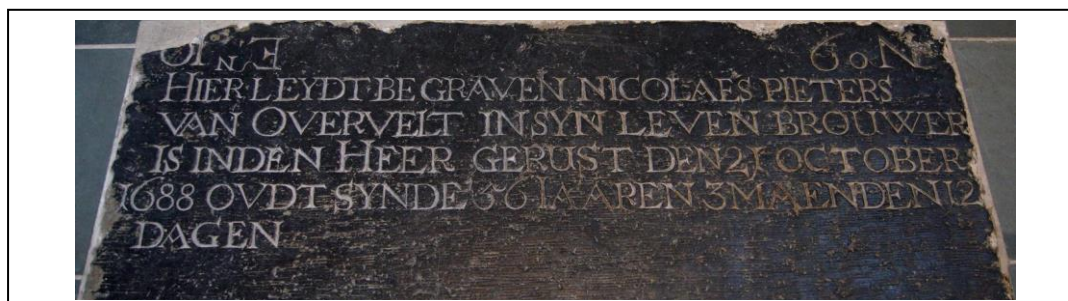 HIER·LEYDT BEGRAVEN NICOLAES PIETERS
VAN OVERVELT IN SYN LEVEN BROUWER
IS INDEN HEER GERUST DEN OCTOBER
1688 OVDT SYNDE 56 IAAREN 3 MAENDEN 12
DAGEN